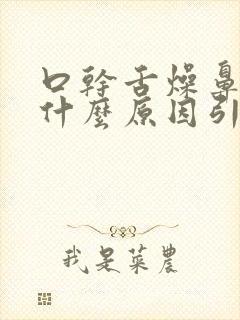 口幹舌燥鼻
什麼原因引
我是菜農